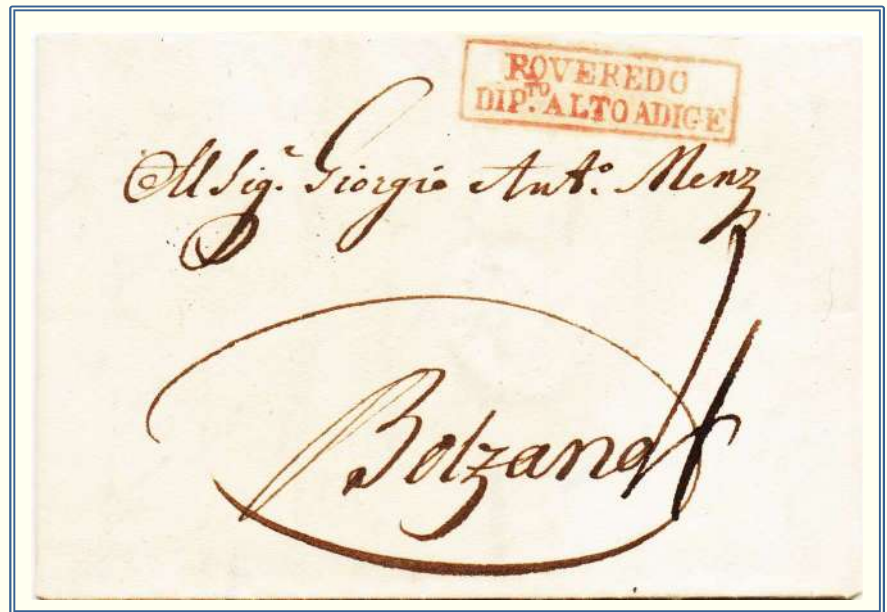 ROVEREDO
DIP.TO ALTO ADIGE
Al Sig.r Giorgio Ant.o Menz
Bolzano
4